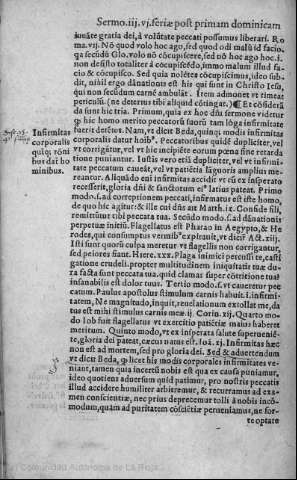 Sermo.iij.vj.feriæ post primam dominicam
iuuāte gratia dei, à volūtate peccati possumus liberari. Ro
ma.vij. Nō quod volo hoc ago, sed quod odi malū id facio.
qa secūdū Glo. volo nō cōcupiscere, sed nō hoc ago hoc. i.
non desisto totaliter à concupiscēdo, immo malum illud fa-
cio & cōcupisco. Sed quia nolētes cōcupiscimus, ideo sub-
dit, nihil ergo dānationis est his qui sunt in Christo Iesu,
qui non secūdum carnē ambulāt. Item admonet vt timeat
periculū (ne deterius tibi aliquid cōtingat.) Et cōsiderā
da sunt hic tria. Primum, quia ex hoc dñi sermone videtur
qp hic homo merito peccatorū suorū tam lōga infirmitate
fuerit detētus. Nam, vt dicit Beda, quinqs modis infirmitas
Infirmitas
corporalis
quīqs; modis
bus dat ho
minibus.
corporalis datur hoīb⁹. Peccatoribus quidē dupliciter, vel
vt corrigātur, vel vt hic incipiēte eorum pœna sine retarda
tione puniantur. Iustis vero etiā dupliciter, vel ad infirmi-
tate peccatum caueāt, vel vt patiētia laquoris amplius me-
reantur. Aliquādo eni infirmitas accidit vt cū ex insperato
recesserit, gloria dñi & sanctorum ei⁹ latius pateat. Primo
modo. s. ad correptionem peccati, infirmatus est iste homo,
de quo hic agitur: & ille cui dñs ait Matth. ix. Confide fili,
remittūtur tibi peccata tua. Secūdo modo. s. ad dānationis
perpetuæ initiū. Flagellatus est Pharao in Aegypto, & He
rodes, qui consumptus vermib⁹ expirauit, vt dicit Act. xiij.
Isti sunt quorū culpa meretur vt flagellis non corrigantur,
sed peiores fiant. Hiere. xxx. Plaga inimici percussi te, casti
gatione crudeli. propter multitudinem iniquitatis tuæ du
ra facta sunt peccata tua. quid clamas super cōtritione tua?
insanabilis est dolor tuus. Tertio modo. s. vt caueretur pec
catum. Paulus apostolus stimulum carnis habuit. i. infirmi-
tatem, Ne magnitudo, inquit, reuelationum extollat me, da
tus est mihi stimulus carnis meæ. ij. Corin. xij. Quarto mo
do Iob fuit flagellatus vt exercitio patiētiæ maius haberet
meritum. Quinto modo, vt ex insperata salute superueniē-
te, gloria dei pateat, cæcus natus est. Ioā. xj. Infirmitas hæc
non est ad mortem, sed pro gloria dei. Sed & aduertendum
vt dicit Beda, qp licet his modis corporales infirmitates ve-
niant, tamen quia incertū nobis est qua ex causa puniamur,
ideo quotiens aduersum quid patimur, pro nostris peccatis
illud accidere humiliter arbitremur, & recurramus ad exa-
men conscientiæ, nec prius deprecemur tolli à nobis incō-
modum, quàm ad puritatem cōscientiæ perueniamus, ne for-
te optate
Comunidad Autónoma de La Rioja